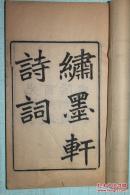 繡墨軒
詩詞